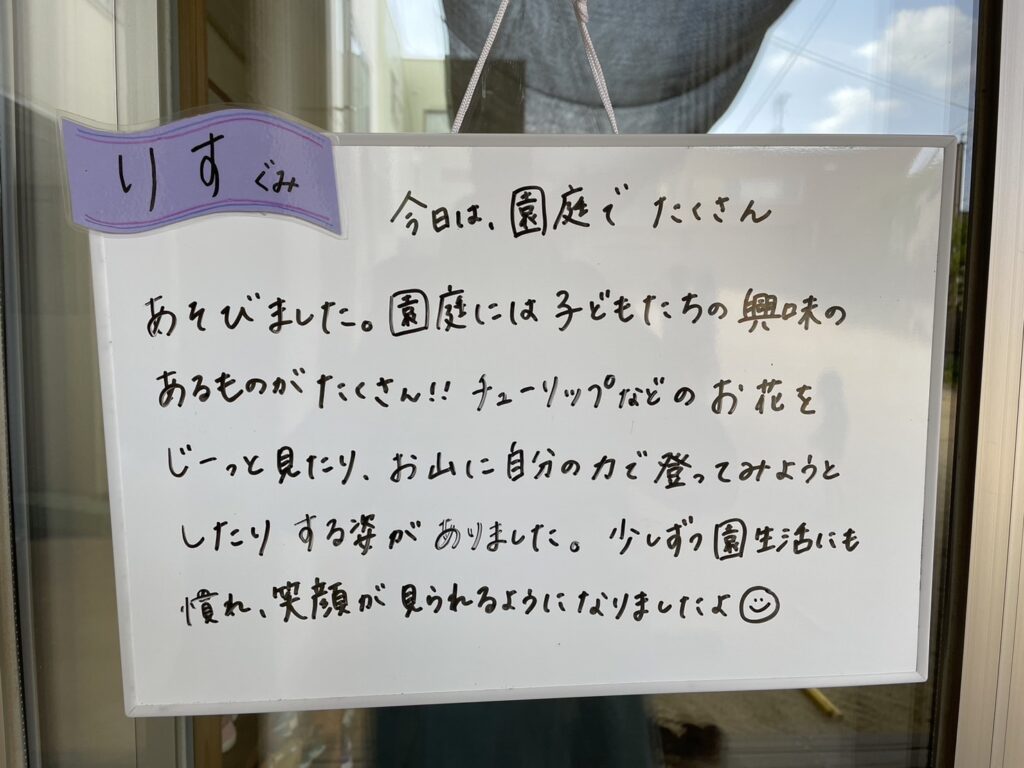 りすぐみ
今日は、園庭で たくさん
あそびました。園庭には子どもたちの興味の
あるものがたくさん!! チューリップなどのお花を
じーっと見たり、お山に自分の力で登ってみようと
したりする姿がありました。少しずつ園生活にも
慣れ、笑顔が見られるようになりましたよ☺